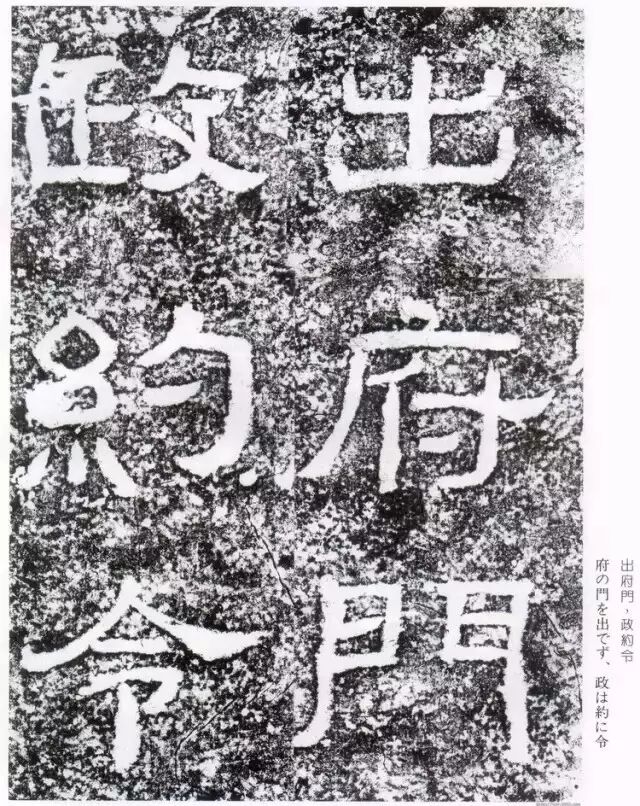 出府門
政約令
出府門，政約令
府の門を出でず、政は約に令